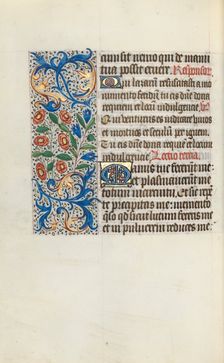 cum sit nemo qui de manu
tua possit eruere. Respons.
Qui lazarum resuscitasti a mo
numento fetidum tu eis dñe dona
requiem et locum indulgencie.
Qui venturus es iudicare viuos
et mortuos et seculum per ignem.
Tu eis dñe dona requiem et locum
indulgencie. Lectio tercia.
Manus tue fecerunt me:
et plasmauerunt me
totum in circuitu: et sic re
pente precipitas me: memento
queso quod sicut lutum feceris me
et in puluerem reduces me: